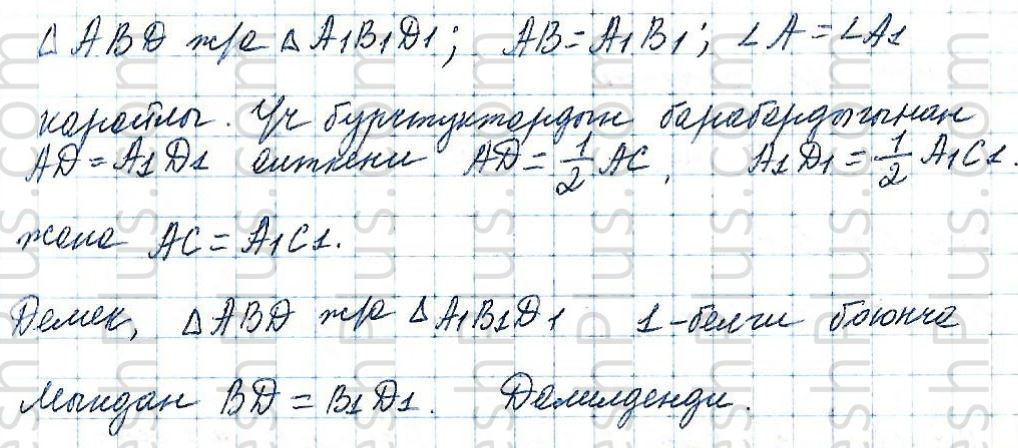 Δ ABD ж/а Δ A1B1D1; AB = A1B1; ∠A = ∠A1
карайлы. Үч бурчтуктардын барабардыгынан
AD = A1D1 анткени AD = 1/2 AC, A1D1 = 1/2 A1C1.
жана AC = A1C1.
Демек, Δ ABD ж/а Δ A1B1D1 1-белги боюнча
Мындан BD = B1D1. Далилденди.